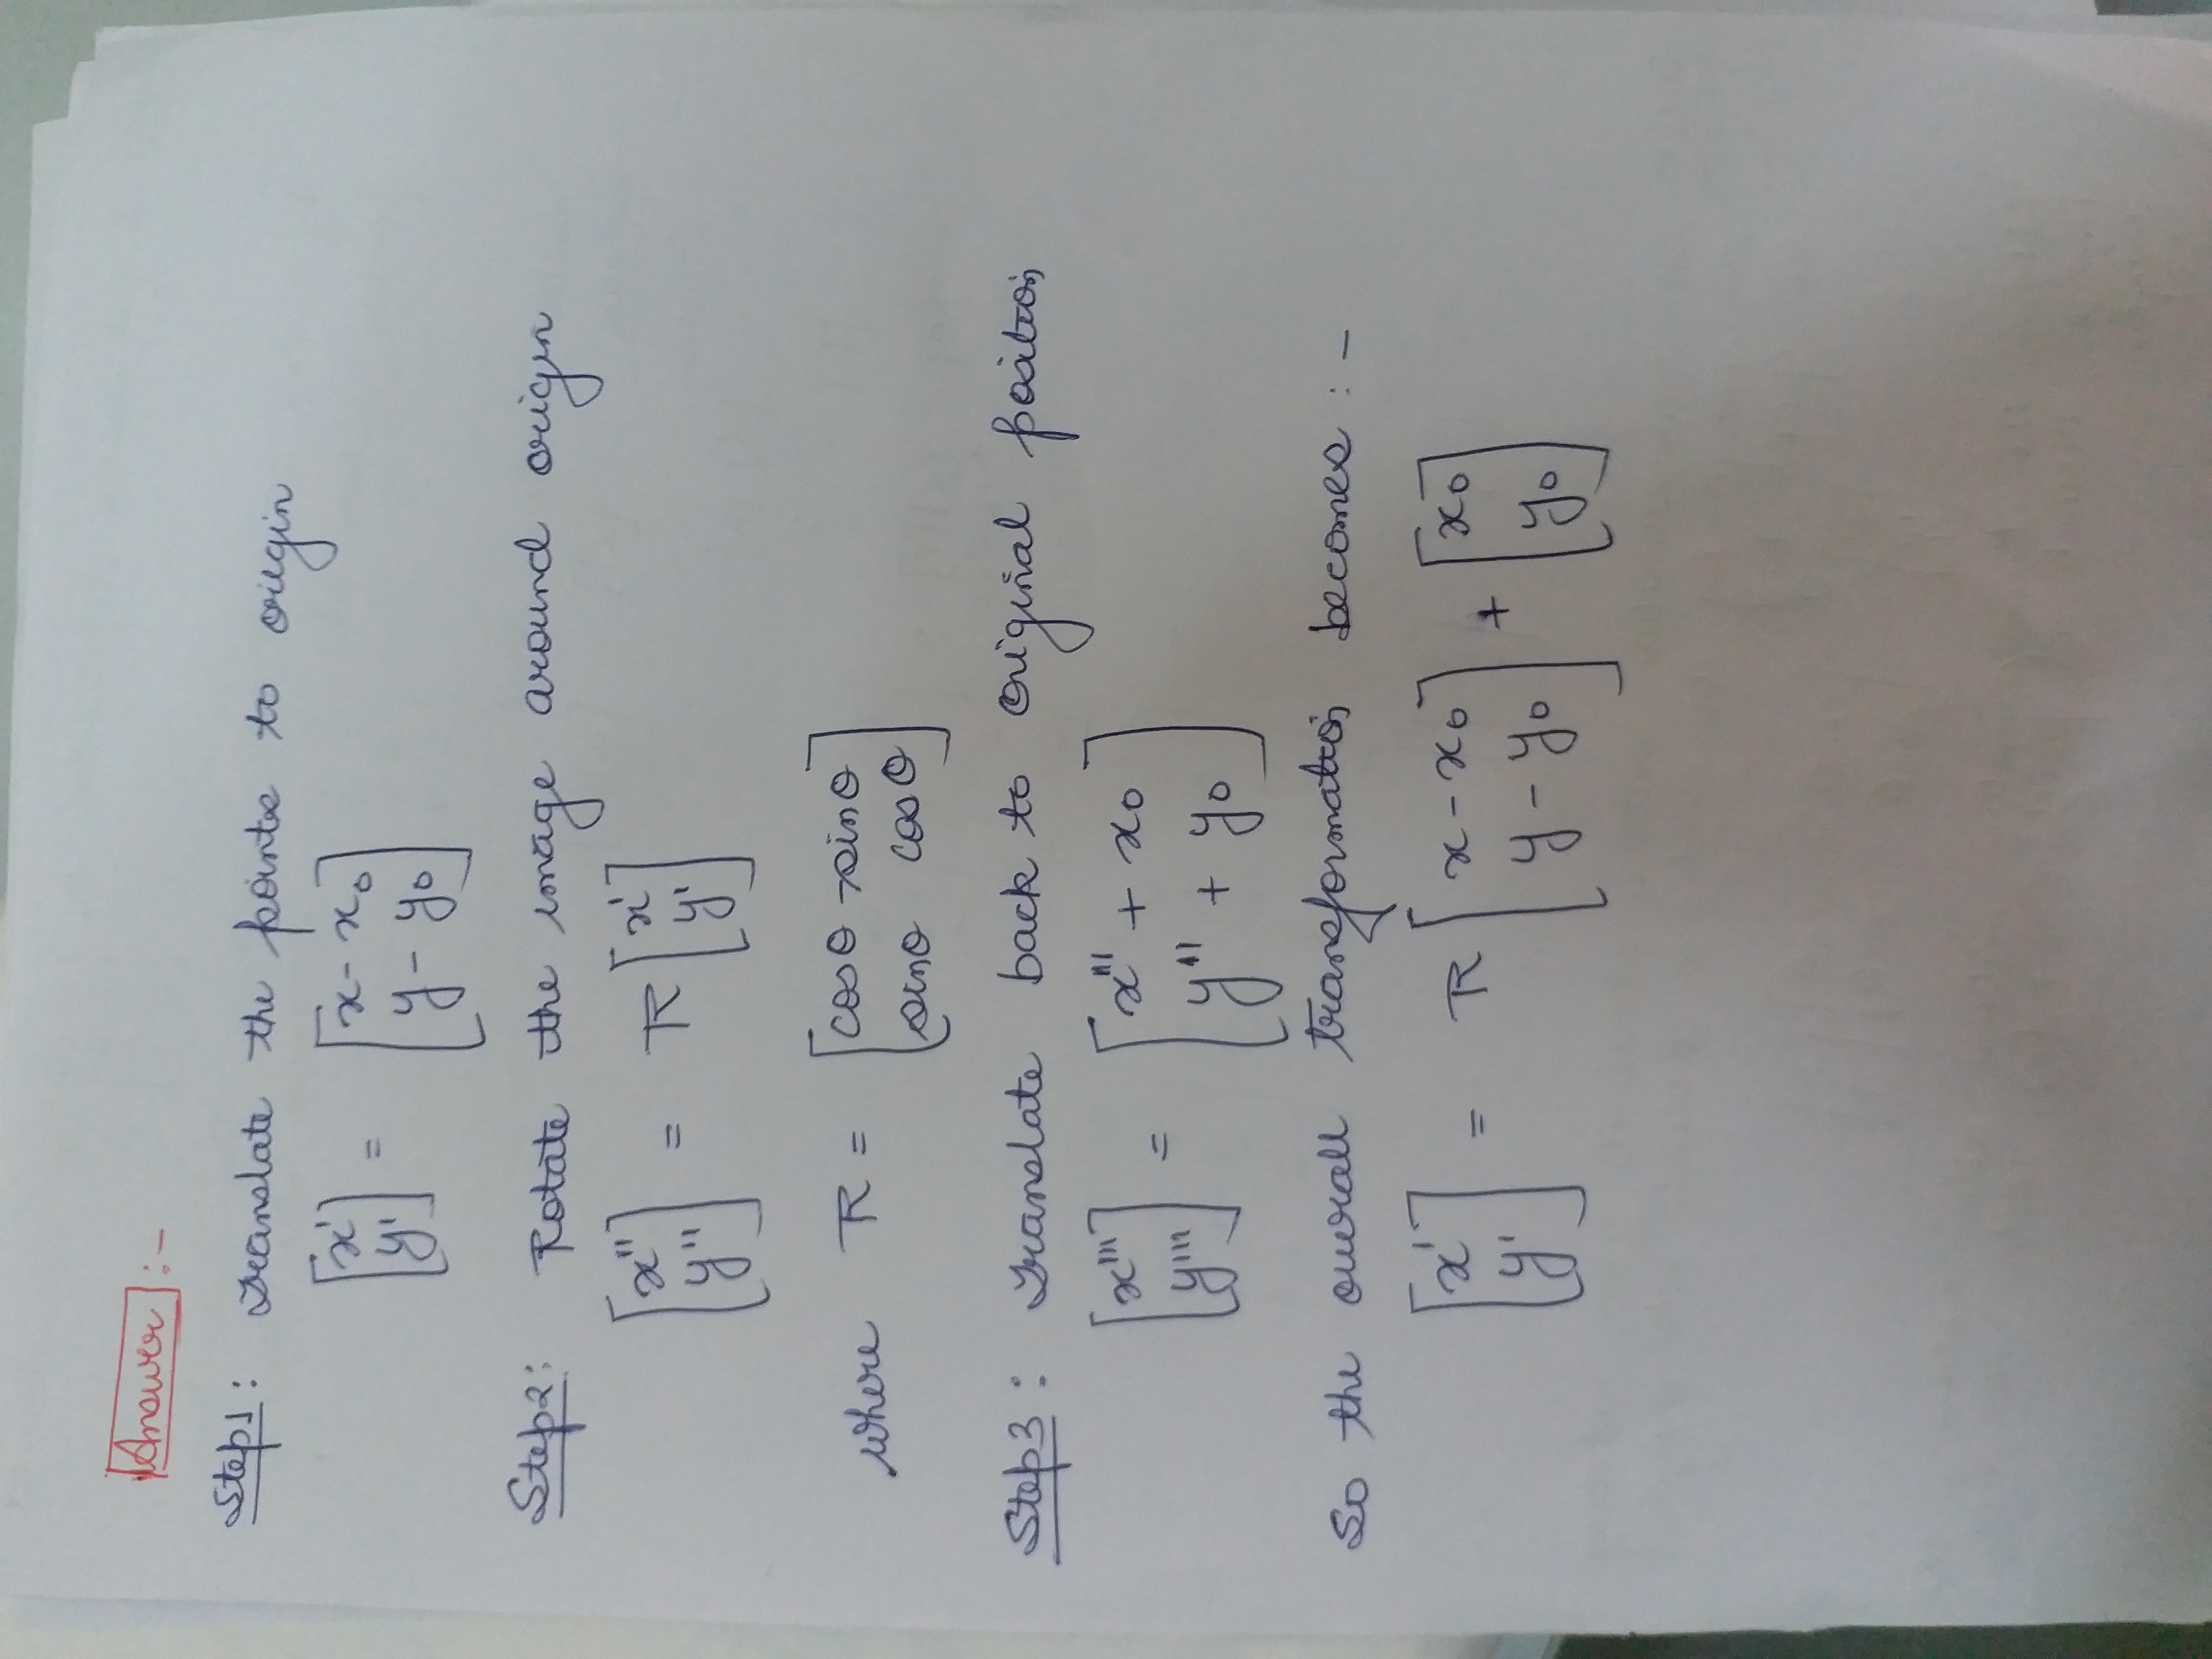 Answer :-
Step1: Translate the points to origin
[x' y'] = [x - x₀ y - y₀]
Step2: Rotate the image around origin
[x'' y''] = R [x' y']
where R = [cosθ -sinθ sinθ cosθ]
Step3: Translate back to original position
[x''' y'''] = [x'' + x₀ y'' + y₀]
So the overall transformation becomes :-
[x' y'] = R [x - x₀ y - y₀] + [x₀ y₀]